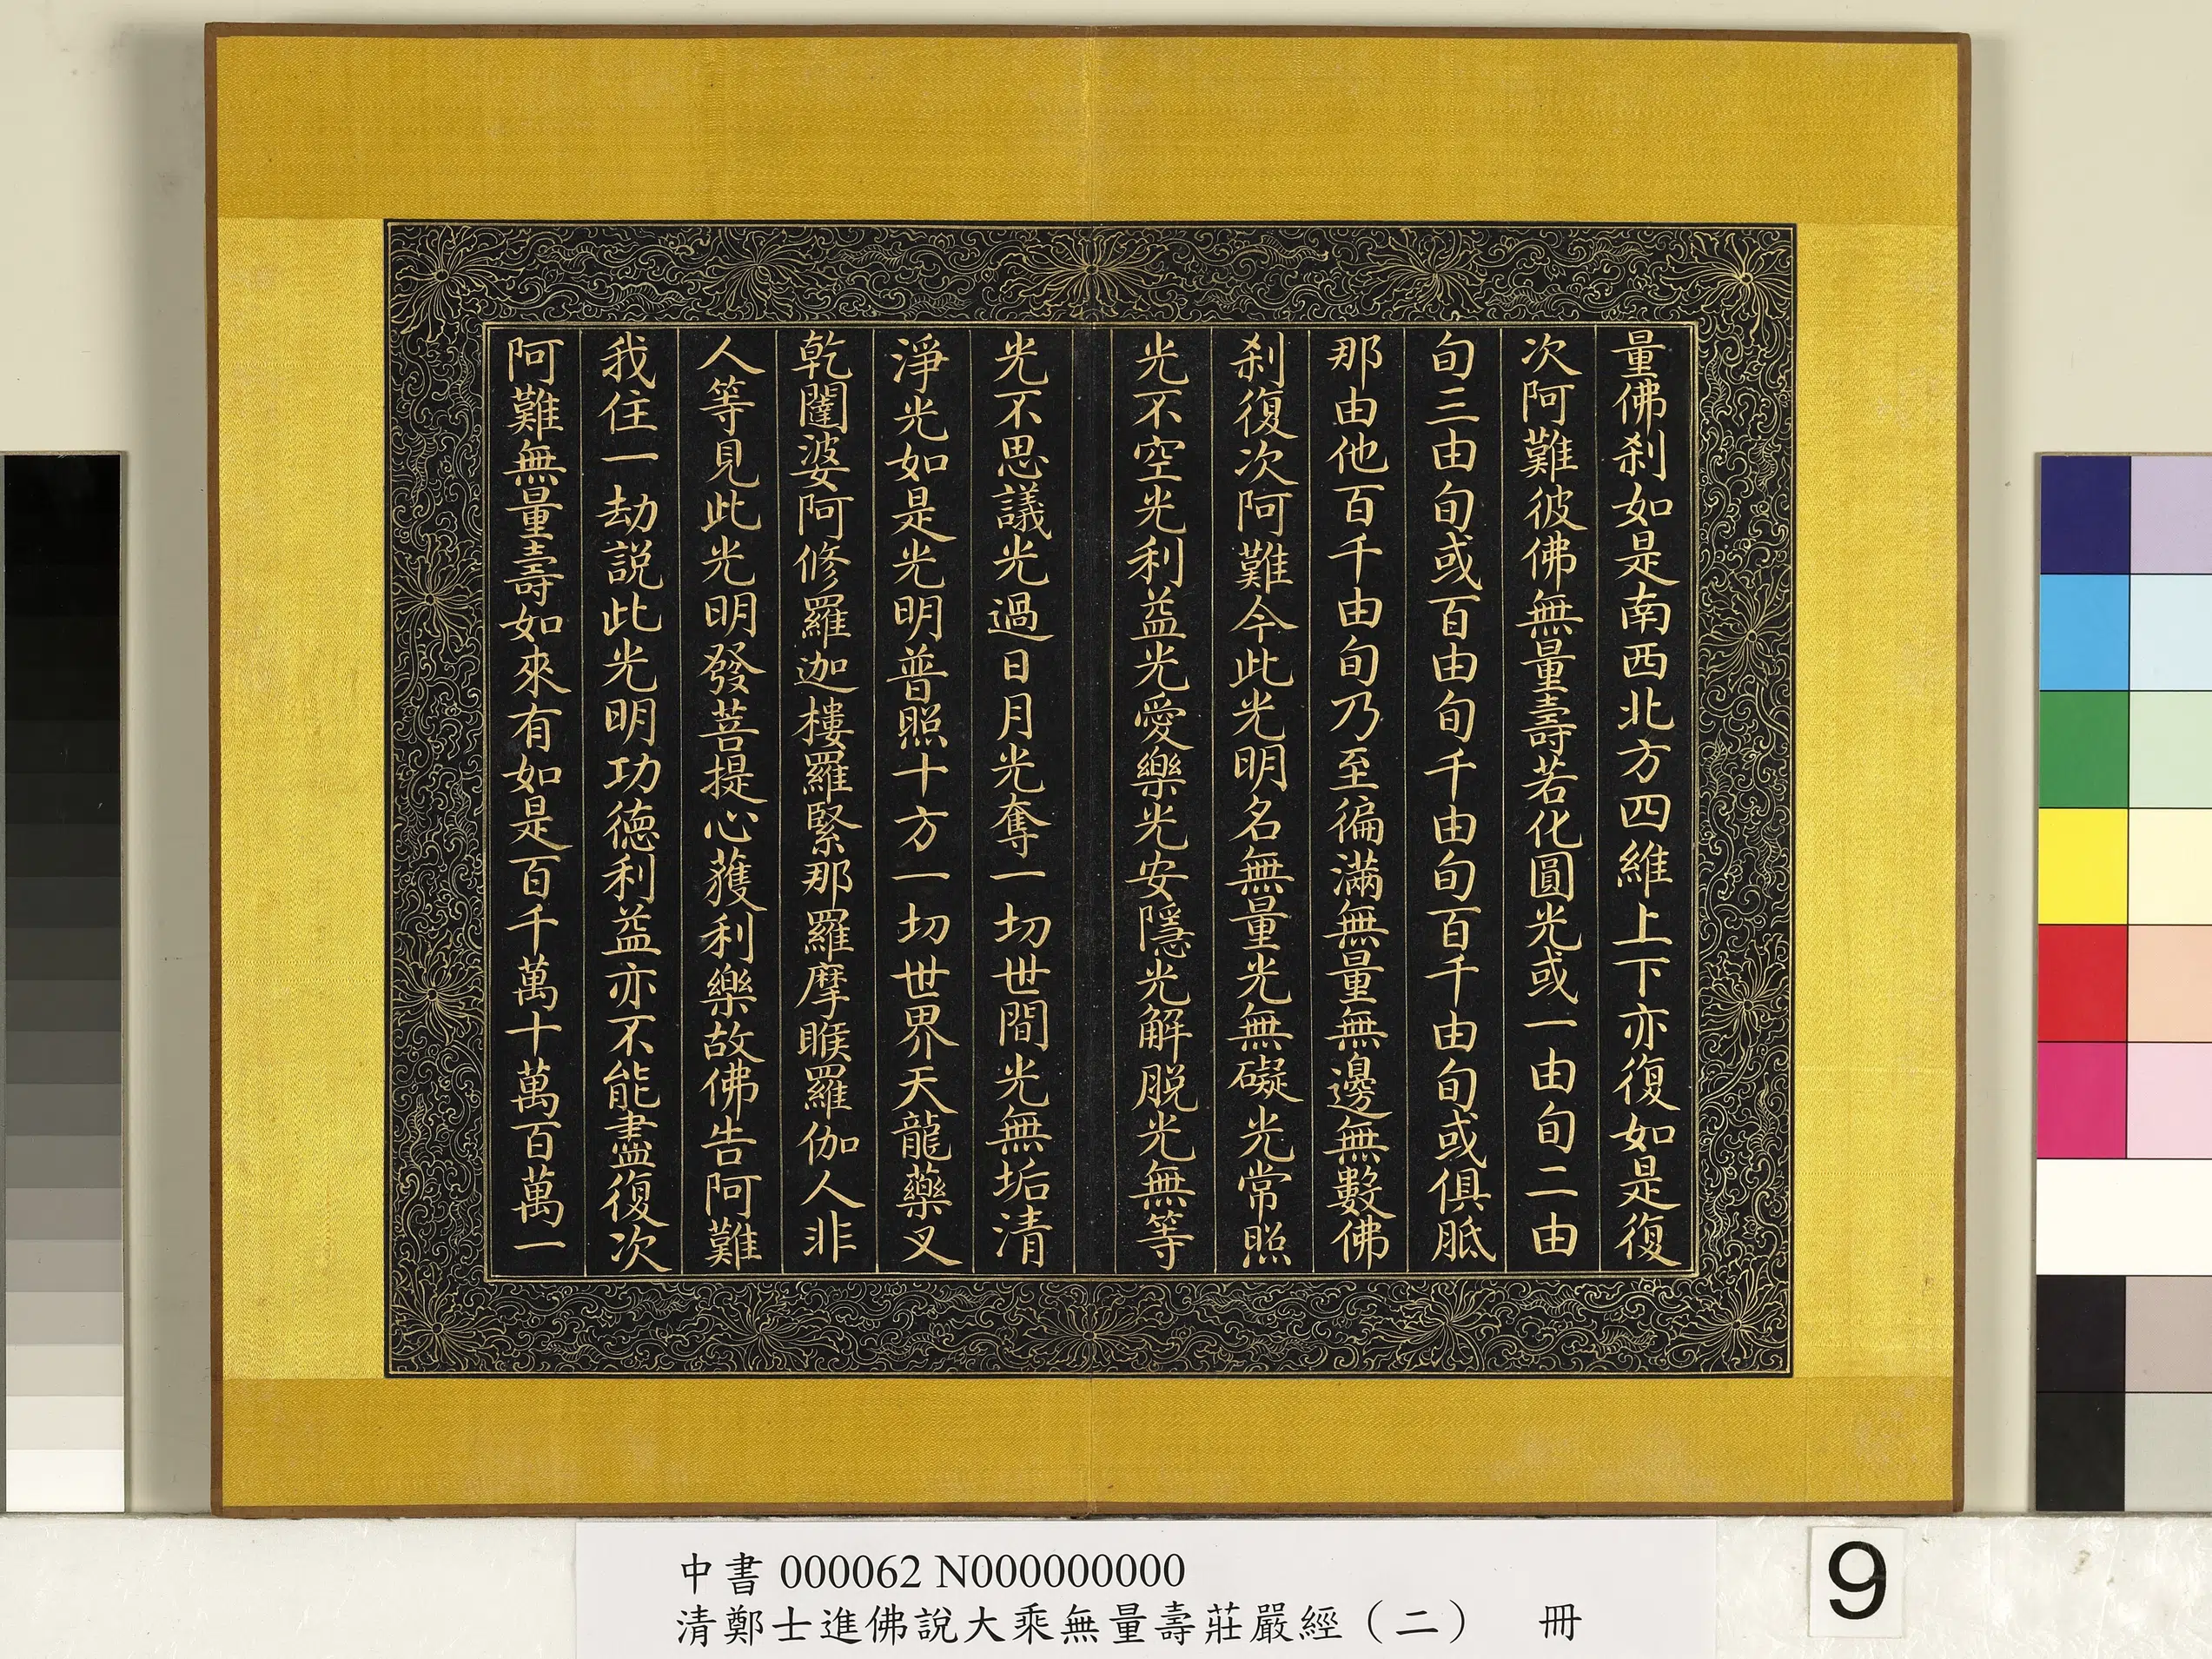 量佛刹如是南西北方四維上下亦復如是復
次阿難彼佛無量壽若化圓光或一由旬二由
旬三由旬或百由旬千由旬百千由旬或俱胝
那由他百千由旬乃至徧滿無量無邊無數佛
刹復次阿難今此光明名無量光無礙光常照
光不空光利益光愛樂光安隱光解脫光無等
光不思議光過日月光奪一切世間光無垢清
淨光如是光明普照十方一切世界天龍藥叉
乾闥婆阿修羅迦樓羅緊那羅摩睺羅伽人非
人等見此光明發菩提心獲利樂故佛告阿難
我住一劫說此光明功德利益亦不能盡復次
阿難無量壽如來有如是百千萬十萬百萬一
中書 000062 N000000000
清鄭士進佛說大乘無量壽莊嚴經（二） 冊
9